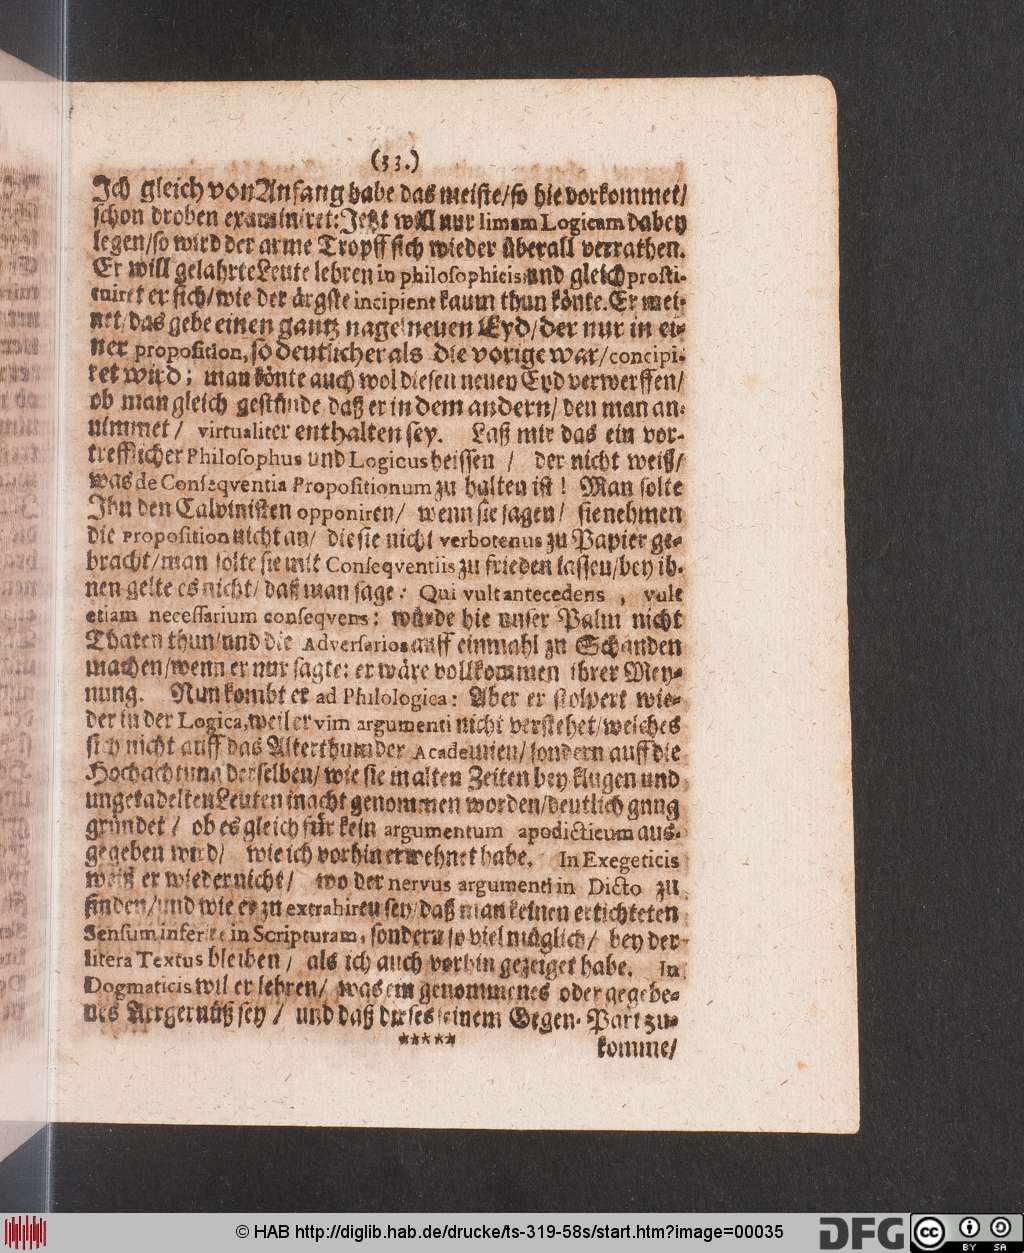 (33.)
Ich gleich von Anfang habe das meiste/ so hie vorkommet/
schon droben examiniret: Jetzt will nur limam Logicam dabey
legen/ so wird der arme Tropff sich wieder überall verrathen.
Er will gelahrte Leute lehren in philosophicis und gleich prosti-
tuiret er sich/ wie der ärgste incipient kaum thun könte. Er mei-
net/ das gebe einen gantz nagelneuen Eyd/ der nur in ei-
ner proposition, so deutlicher als die vorige war/ concipi-
ret wird; man könte auch wol diesen neuen Eyd verwerffen/
ob man gleich gestünde daß er in dem andern/ den man an-
nimmet/ virtualiter enthalten sey. Laß mir das ein vor-
trefflicher Philosophus und Logicus heissen / der nicht weiß/
was de Conseqventia Propositionum zu halten ist! Man solte
Ihn den Calvinisten opponiren/ wenn sie sagen/ sie nehmen
die Proposition nicht an/ die sie nicht verbotenus zu Papier ge-
bracht/ man solte sie mit Conseqventiis zu frieden lassen/ bey ih-
nen gelte es nicht/ daß man sage: Qui vult antecedens , vult
etiam necessarium conseqvens: würde hie unser Palm nicht
Thaten thun/ und die Adversarios auff einmahl zu Schanden
machen/ wenn er nur sagte: er wäre vollkommen ihrer Mey-
nung. Nun kombt er ad Philologica: Aber er stolpert wie-
der in der Logica, weil er vim argumenti nicht verstehet/ welches
sich nicht auff das Alterthum der Academien/ sondern auff die
Hochachtung derselben/ wie sie in alten Zeiten bey klugen und
ungetadelten Leuten in acht genommen worden/ deutlich gnug
gründet / ob es gleich für kein argumentum apodicticum aus-
gegeben wird/ wie ich vorhin erwehnet habe. In Exegeticis
weiß er wieder nicht/ wo der nervus argumenti in Dicto zu
finden/ und wie er zu extrahiren sey/ daß man keinen ertichteten
Sensum inferire in Scripturam, sondern so viel müglich/ bey der
litera Textus bleiben / als ich auch vorhin gezeiget habe. In
Dogmaticis wil er lehren/ was ein genommenes oder gegebe-
nes Aergernüß sey / und daß dieses seinem Gegen-Part zu-
*****
komme/
© HAB http://diglib.hab.de/drucke/ts-319-58s/start.htm?image=00035
DFG
cc
BY SA